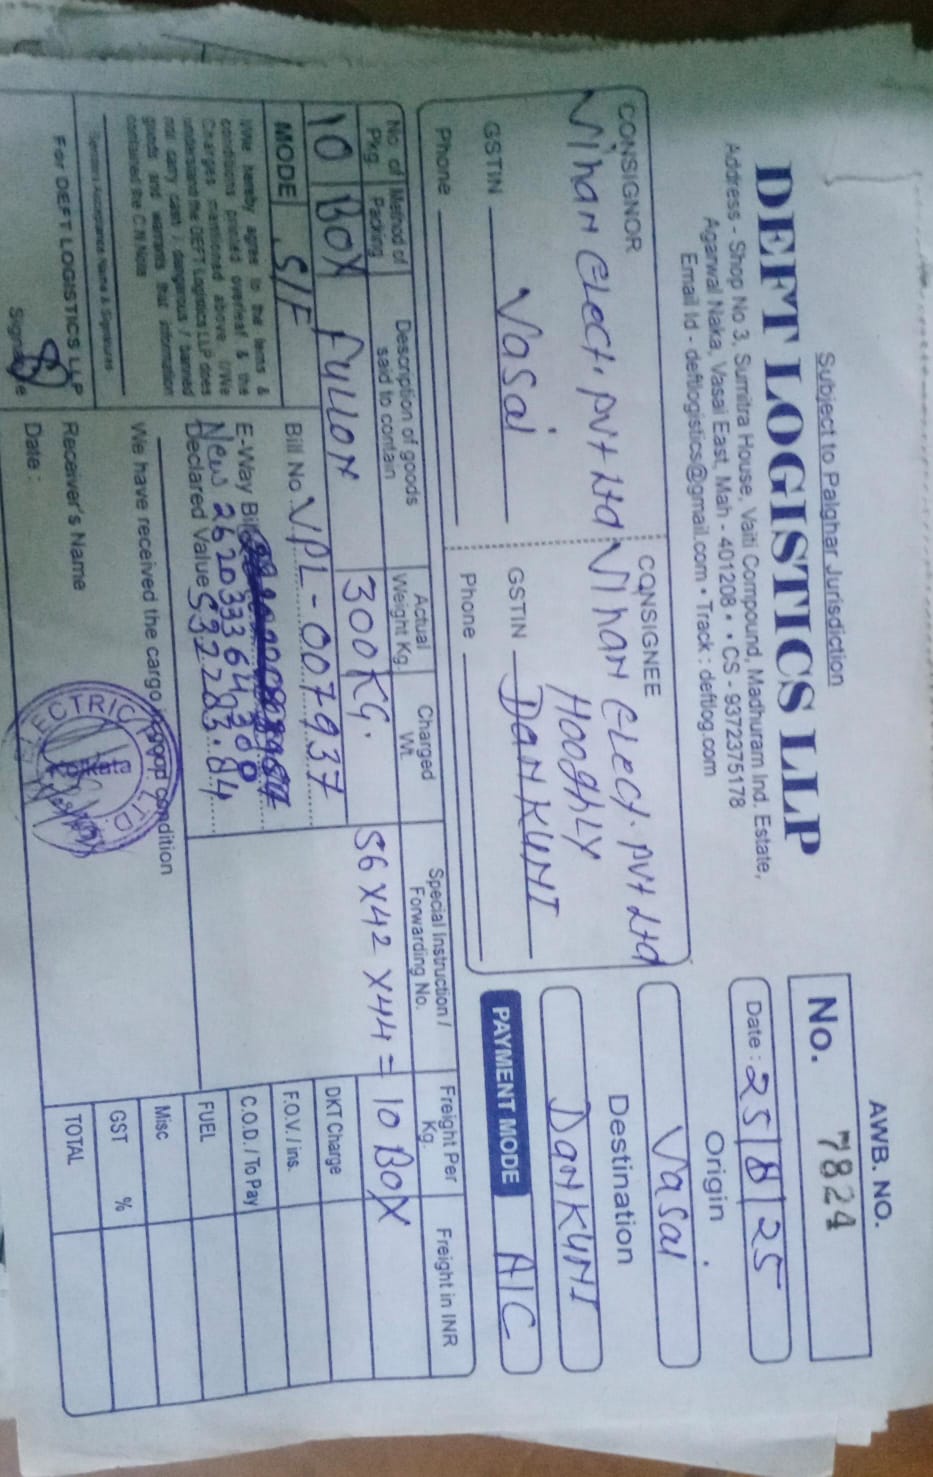 Subject to Palghar Jurisdiction
DEFT LOGISTICS LLP
Address - Shop No 3, Sumitra House, Vaiti Compound, Madhuram Ind. Estate,
Agarwal Naka, Vasai East, Mah - 401208 • • CS - 9372375178
Email Id - deftlogistics@gmail.com • Track : deftlog.com
AWB. NO.
No. 7824
Date : 25/8/25
Origin
Vasai
Destination
DANKUNI
PAYMENT MODE A/C
CONSIGNOR
Vihan Elect. Pvt Ltd
Vasai
GSTIN
Phone
CONSIGNEE
Vihan Elect. Pvt Ltd
Hooghly
DANKUNI
GSTIN
Phone
No. of Pkg. Method of Packing Description of goods said to contain Actual Weight Kg. Charged Wt. Special Instruction / Forwarding No. Freight Per Kg. Freight in INR
10 BOX 300 KG. 56 X 42 X 44 = 10 BOX
MODE S/F
Bill No. VPL - 007937
E-Way Bill
New 262033364938
Declared Value 532283.84
I/We hereby agree to the terms &
conditions printed overleaf & the
Charges mentioned above. I/We
understand the DEFT Logistics LLP does
not carry cash / dangerous / banned
goods and warrants that information
contained the C/N Note
We have received the cargo good condition
For DEFT LOGISTICS LLP
Signature
Receiver's Name
Date :
DKT Charge
F.O.V. / ins.
C.O.D. / To Pay
FUEL
Misc
GST %
TOTAL